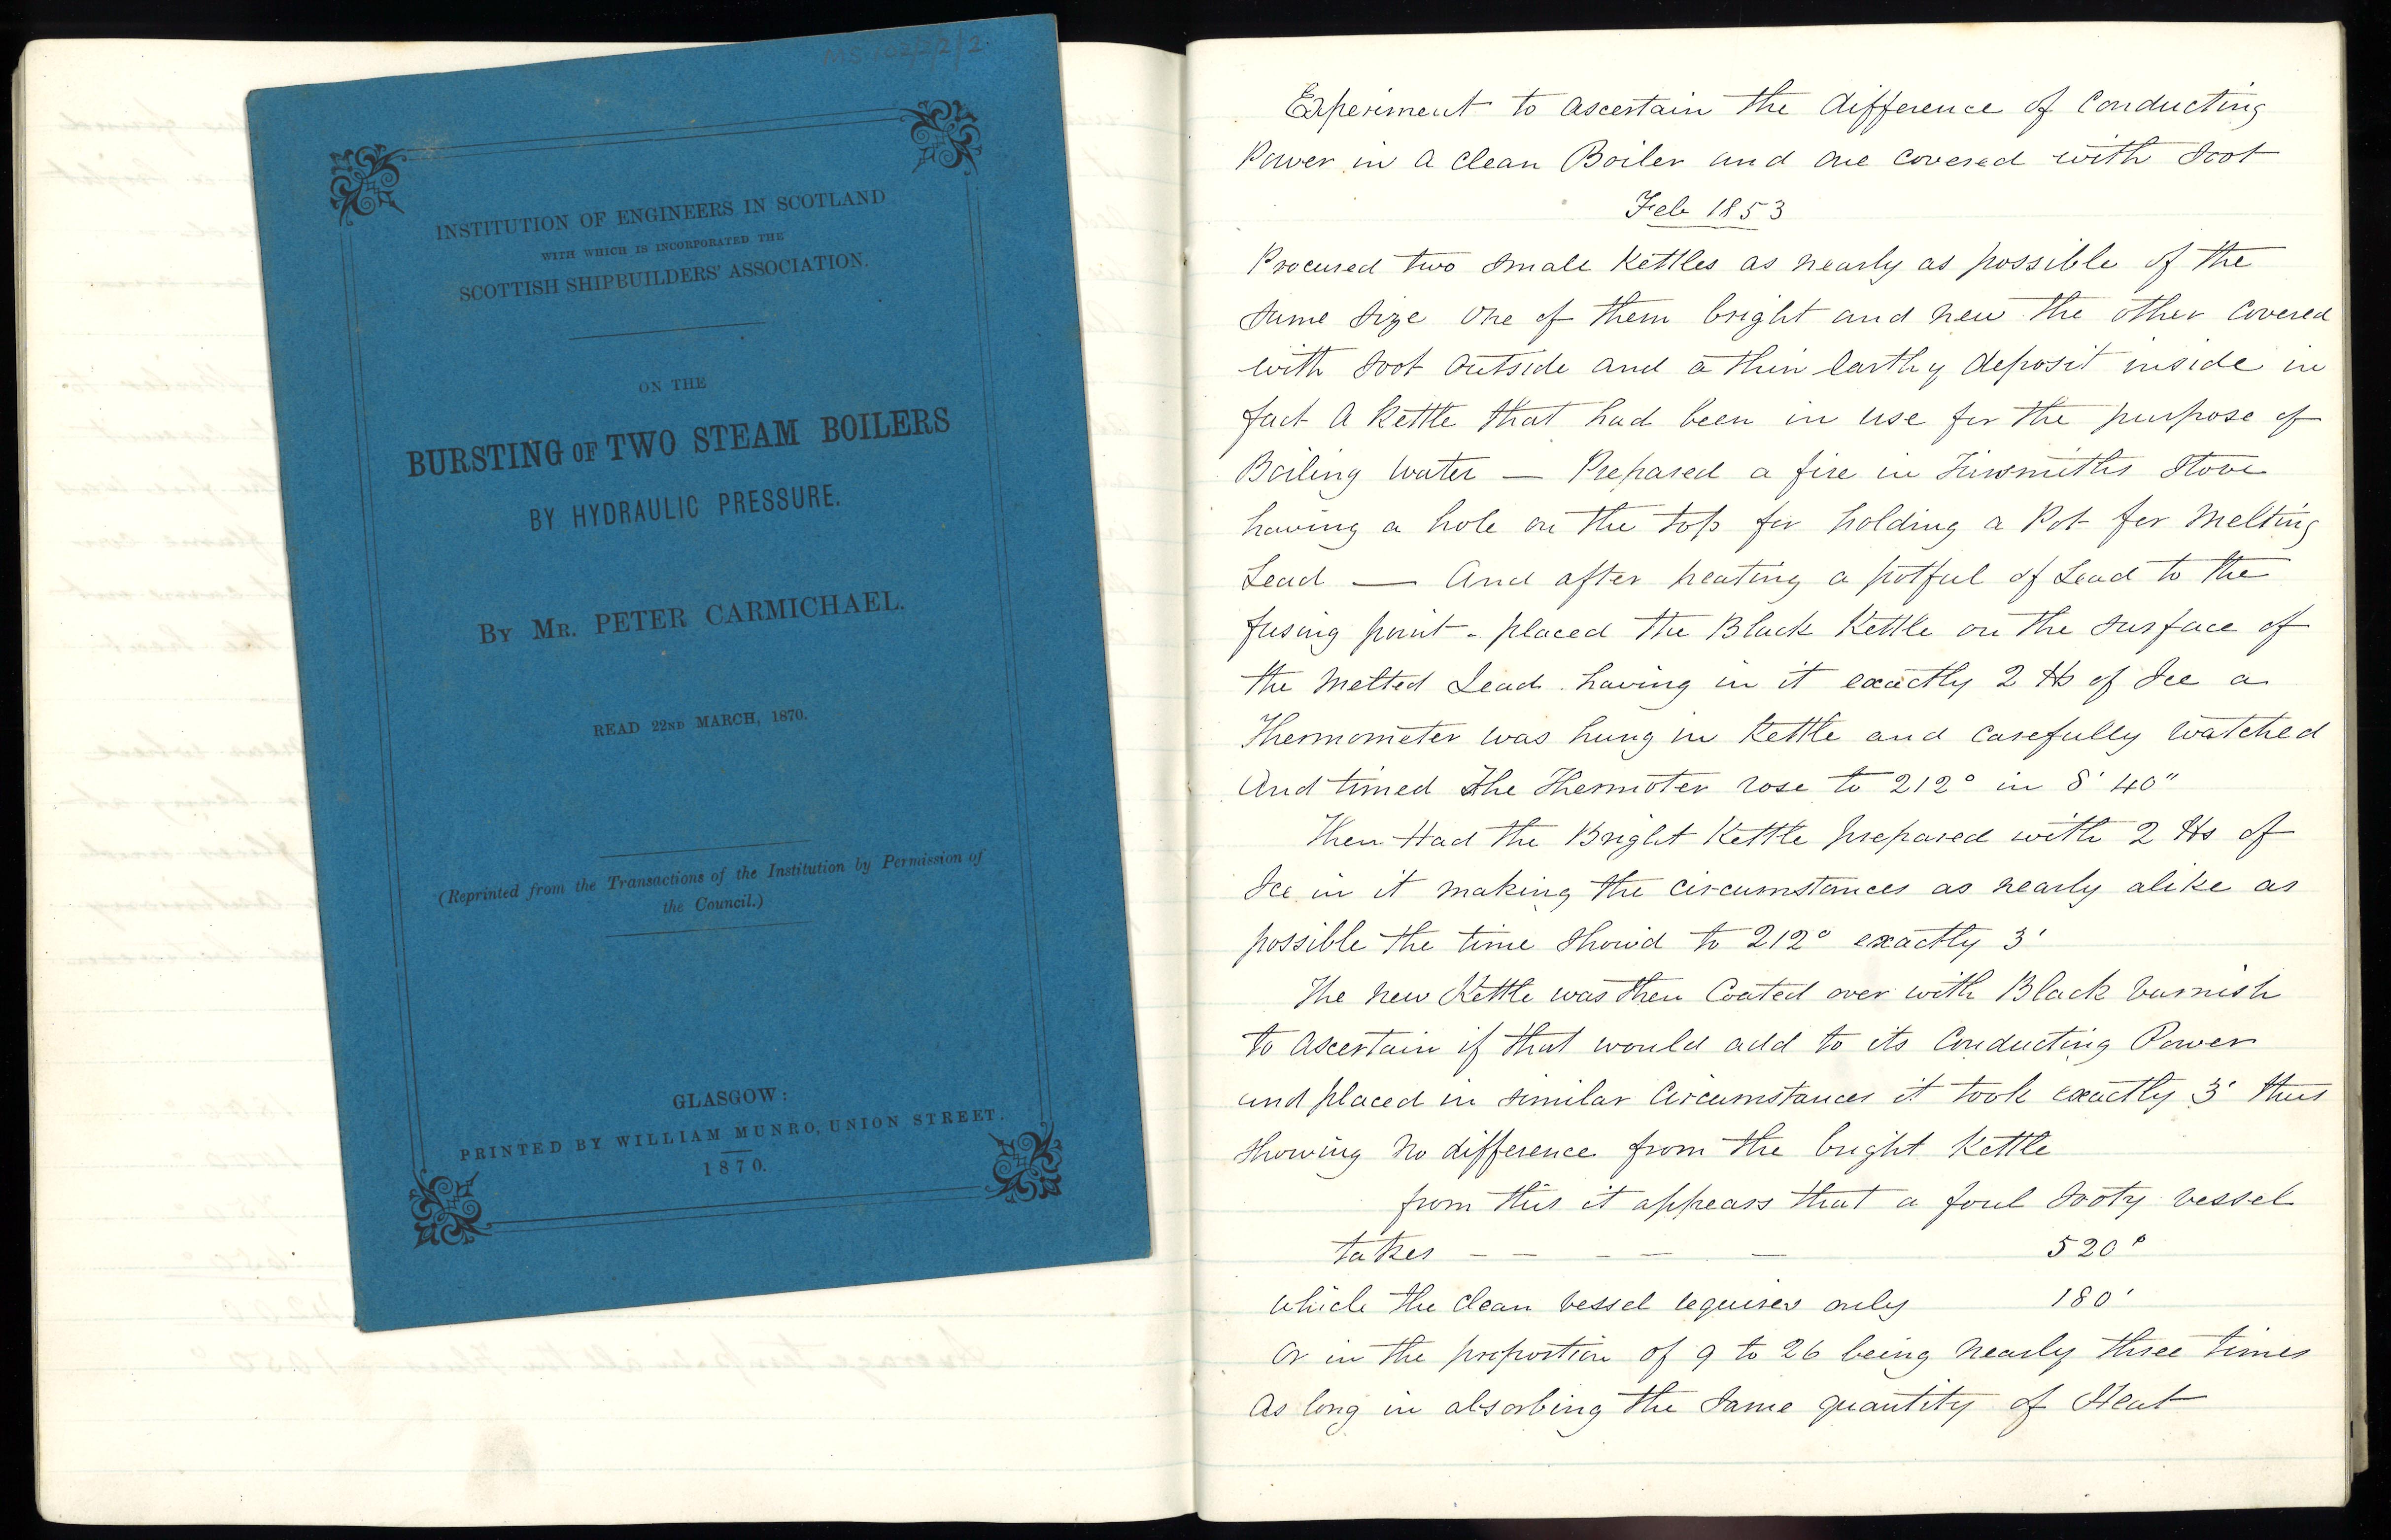 MS 102/2/2
INSTITUTION OF ENGINEERS IN SCOTLAND
WITH WHICH IS INCORPORATED THE
SCOTTISH SHIPBUILDERS' ASSOCIATION.
ON THE
BURSTING OF TWO STEAM BOILERS
BY HYDRAULIC PRESSURE.
BY MR. PETER CARMICHAEL.
READ 22ND MARCH, 1870.
(Reprinted from the Transactions of the Institution by Permission of
the Council.)
GLASGOW:
PRINTED BY WILLIAM MUNRO, UNION STREET.
1870.
Experiment to ascertain the difference of Conducting
Power in a clean Boiler and one covered with Soot
Feb 1853
Procured two small Kettles as nearly as possible of the
same size one of them bright and new the other Covered
with soot outside and a thin earthy deposit inside in
fact a Kettle that had been in use for the purpose of
Boiling water — Prepared a fire in Tinsmiths Stove
having a hole on the top for holding a Pot for Melting
Lead — And after heating a potful of Lead to the
fusing point - placed the Black Kettle on the surface of
the Melted Lead having in it exactly 2 lbs of Ice a
Thermometer was hung in Kettle and carefully watched
And timed The Thermoter rose to 212° in 8' 40"
Then Had the Bright Kettle prepared with 2 lbs of
Ice in it making the circumstances as nearly alike as
possible the time Show'd to 212° exactly 3'
The new Kettle was then Coated over with Black varnish
to Ascertain if that would add to its Conducting Power
and placed in similar Circumstances it took exactly 3' thus
showing no difference from the bright Kettle
from this it appears that a foul sooty vessel
takes - - - - - 520"
which the clean vessel requires only 180'
or in the proportion of 9 to 26 being nearly three times
as long in absorbing the same quantity of Heat